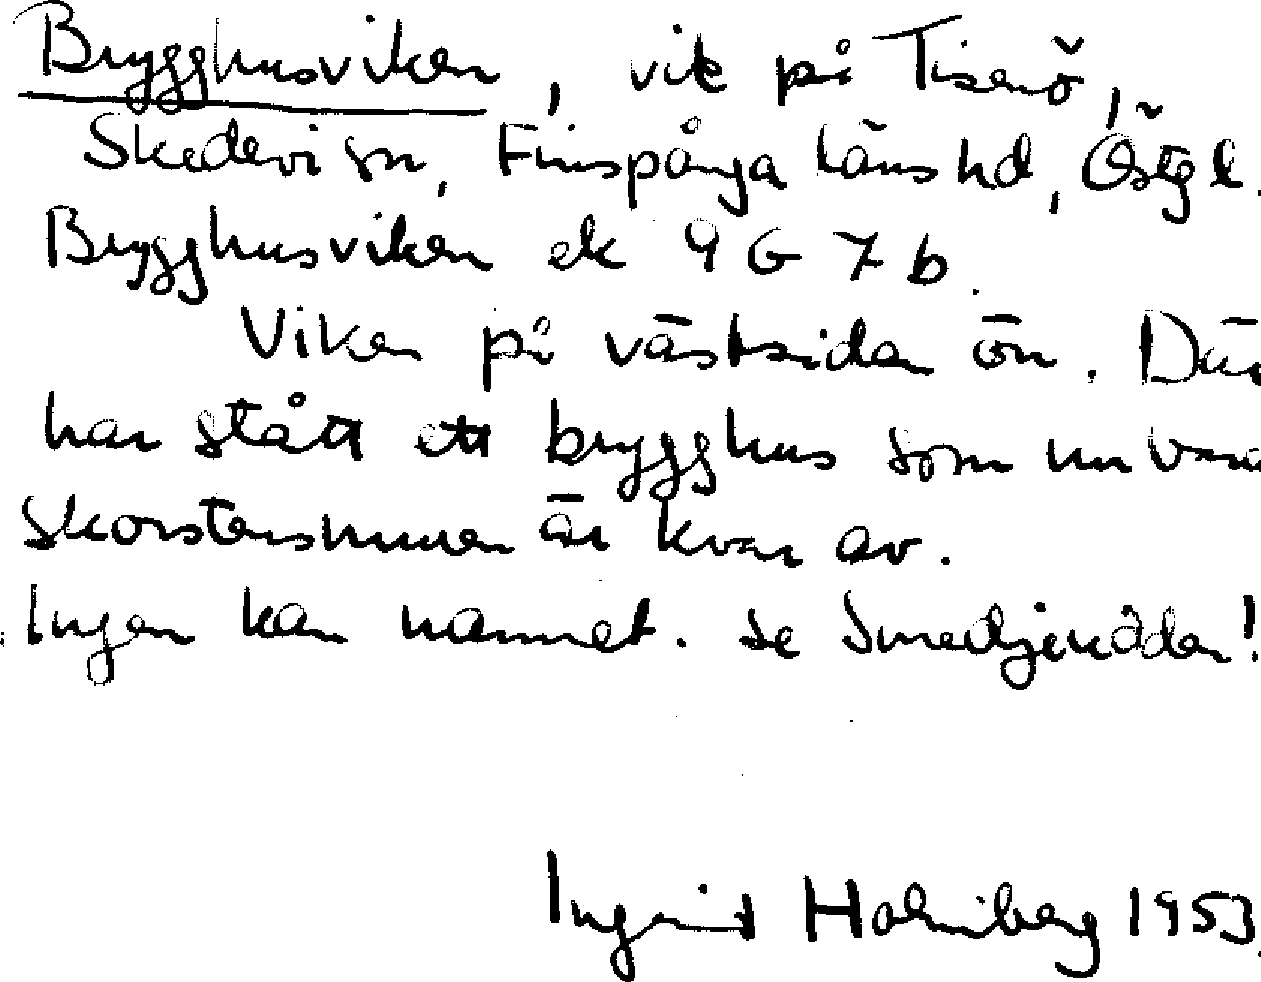 Brygghusviken, vik på Tisenö,
Skedevi sn, Finspånga läns hd, Östgl.
Brygghusviken ek 9 G 7 b.
Viken på västsidan ön. Där
har stått ett brygghus som nu bara
skorstensmuren är kvar av.
Ingen kan namnet. Se Smedjeuddan!
Ingrid Holmberg 1953.